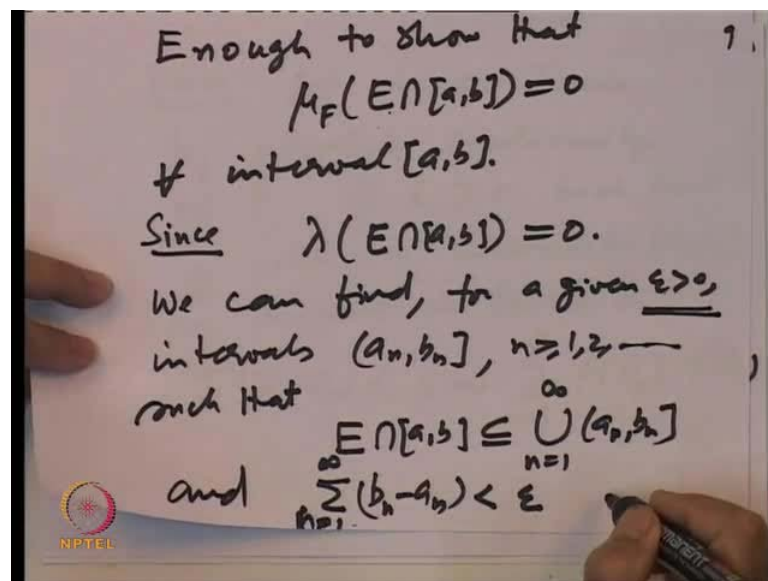 Enough to show that 9.
μ_F(E∩[a,b])=0
∀ interval [a,b].
Since λ(E∩[a,b])=0.
We can find, for a given ε>0,
intervals (a_n,b_n], n≥1,2,—
such that
E∩[a,b]⊆ ⋃_{n=1}^{∞} (a_n,b_n]
and ∑_{n=1}^{∞} (b_n-a_n)<ε
NPTEL